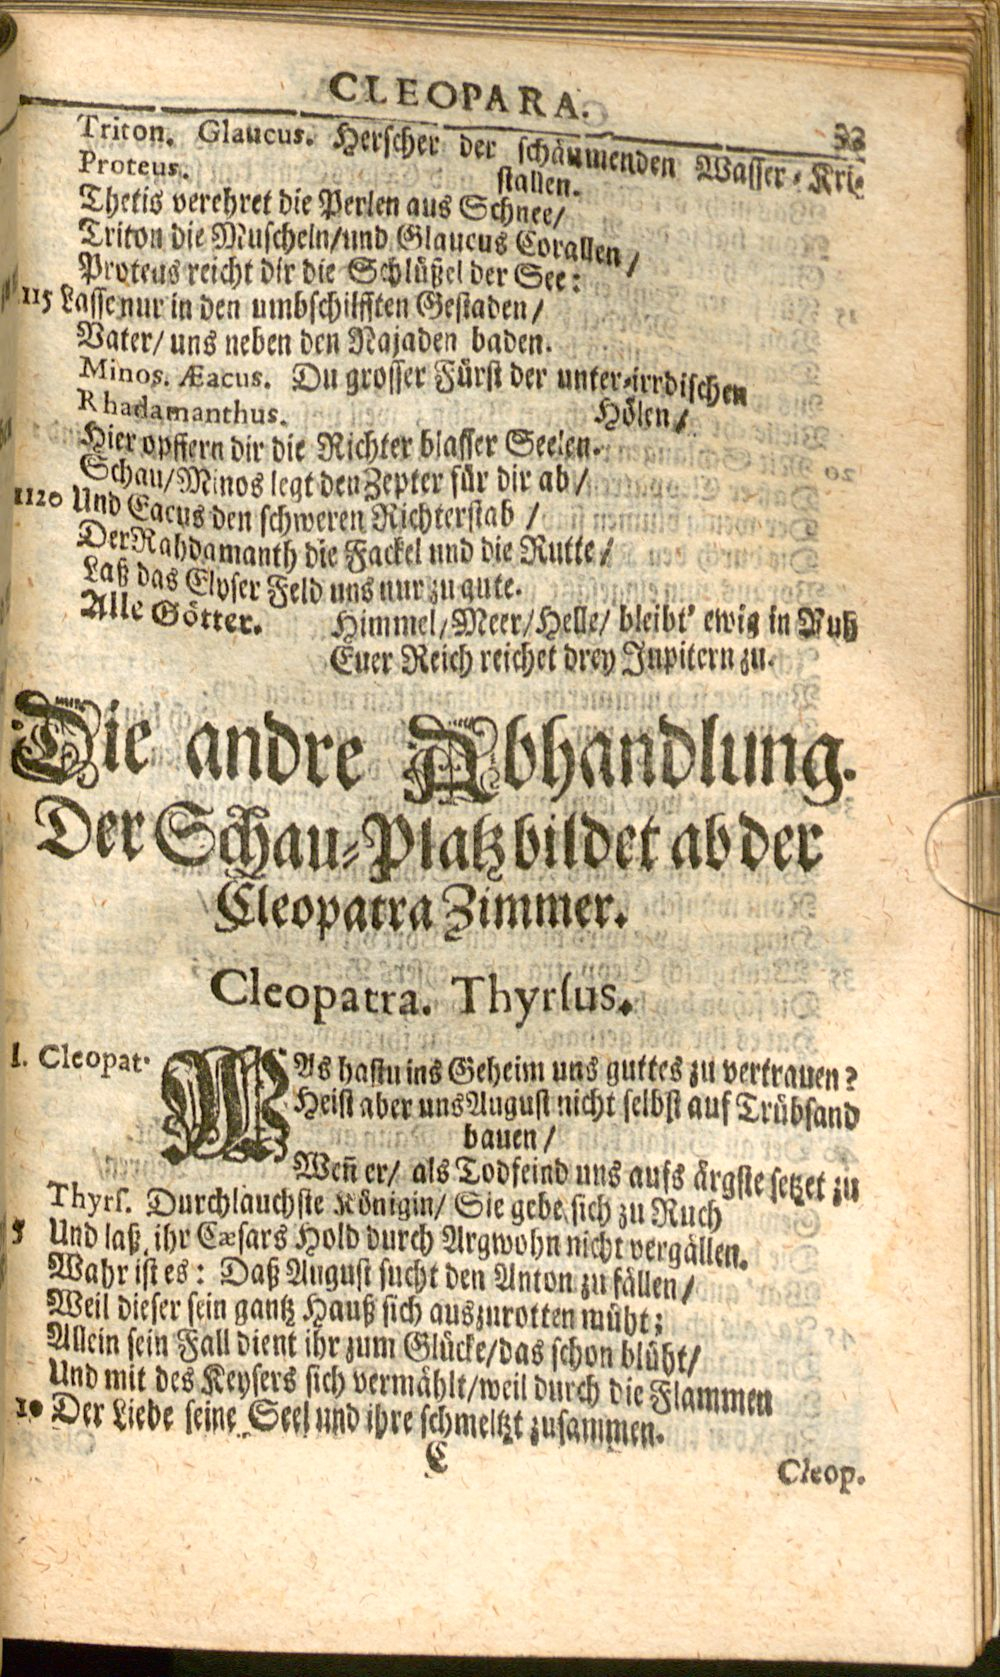 CLEOPARA.
33
Triton. Glaucus. Herscher der schäumenden Wasser-Kri-
Proteus. stallen.
Thetis verehret die Perlen aus Schnee/
Triton die Muscheln/und Glaucus Corallen/
Proteus reicht dir die Schlüßel der See:
115 Lasse nur in den umbschilfften Gestaden/
Vater/ uns neben den Najaden baden.
Minos. Æacus. Du grosser Fürst der unter-irrdischen
Rhadamanthus. Hölen/
Hier opffern dir die Richter blasser Seelen.
Schau/Minos legt den Zepter für dir ab/
1120 Und Eacus den schweren Richterstab /
Der Rahdamanth die Fackel und die Rutte/
Laß das Elyser Feld uns nur zu gute.
Alle Götter. Himmel/Meer/Helle/ bleibt' ewig in Ruh
Euer Reich reichet drey Jupitern zu.
Die andre Abhandlung.
Der Schau-Platz bildet ab der
Cleopatra Zimmer.
Cleopatra. Thyrsus.
1. Cleopat. WAs hastu ins Geheim uns guttes zu vertrauen?
Heist aber uns August nicht selbst auf Trübsand
bauen/
Weñ er/ als Todfeind uns aufs ärgste setzet zu
Thyrs. Durchlauchste Königin/ Sie gebe sich zu Ruch
5 Und laß ihr Cæsars Hold durch Argwohn nicht vergällen.
Wahr ist es: Daß August sucht den Anton zu fällen/
Weil dieser sein gantz Hauß sich auszurotten müht;
Allein sein Fall dient ihr zum Glücke/das schon blüht/
Und mit des Keysers sich vermählt/weil durch die Flammen
10 Der Liebe seine Seel und ihre schmeltzt zusammen.
C
Cleop.